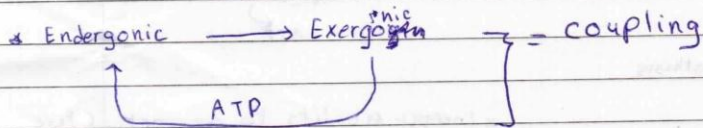 * Endergonic → Exergonic = coupling
ATP